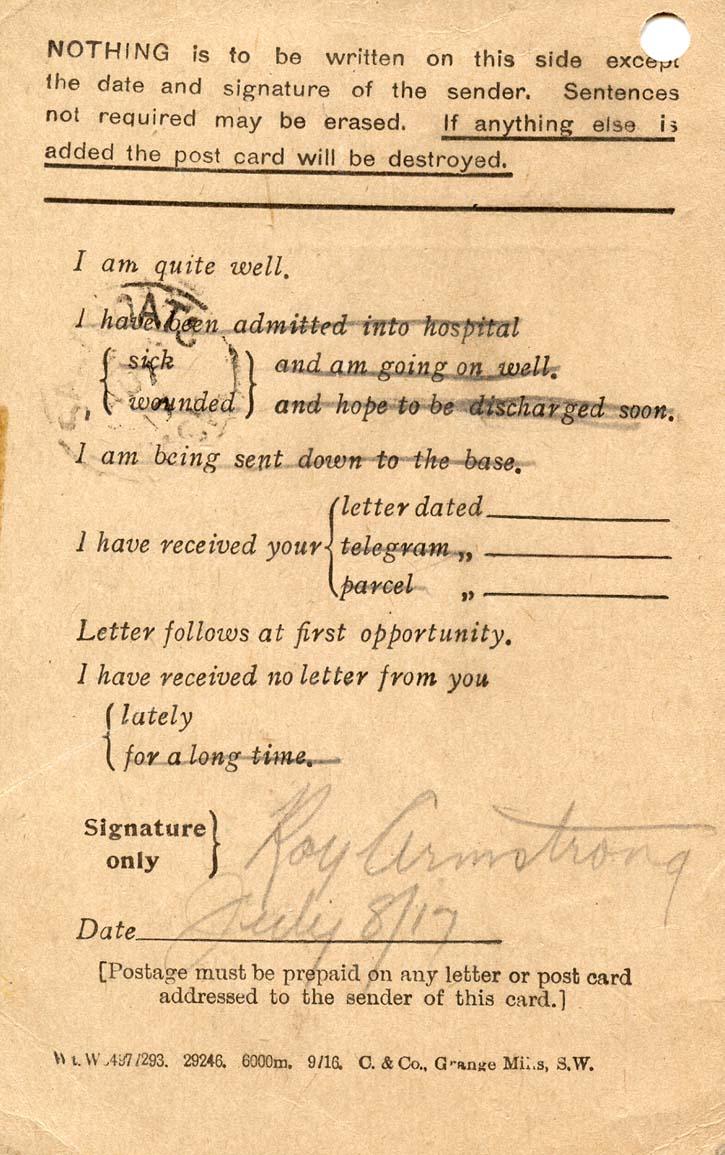 NOTHING is to be written on this side except
the date and signature of the sender. Sentences
not required may be erased. If anything else is
added the post card will be destroyed.
I am quite well.
I have been admitted into hospital
{ sick } and am going on well.
{ wounded } and hope to be discharged soon.
I am being sent down to the base.
{ letter dated
I have received your { telegram „
{ parcel „
Letter follows at first opportunity.
I have received no letter from you
{ lately
{ for a long time.
Signature
only } Roy Armstrong
Date July 8/17
[Postage must be prepaid on any letter or post card
addressed to the sender of this card.]
Wt. W .497/293. 29246. 6000m. 9/16. C. & Co., Grange Mills, S.W.